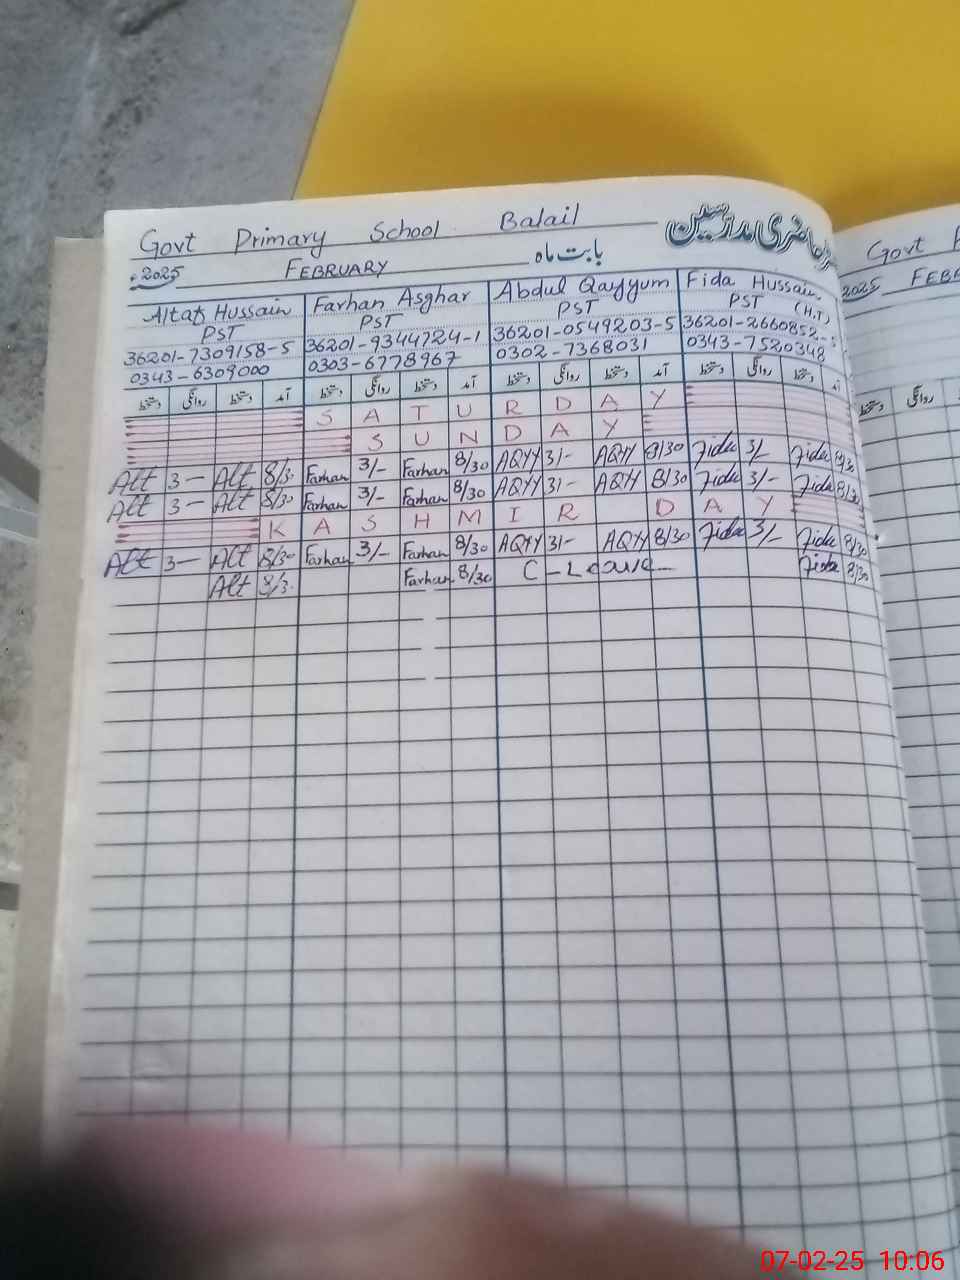 Govt Primary School Balail
حاضری مدرسین
2025 FEBRUARY بابت ماہ
Altaf Hussain Farhan Asghar Abdul Qayyum Fida Hussain
PST PST PST PST (H.T)
36201-7309158-5 36201-9344724-1 36201-0549203-5 36201-2660852-5
0343-6309000 0303-6778967 0302-7368031 0343-7520348
دستخط روانگی دستخط آمد دستخط روانگی دستخط آمد دستخط روانگی دستخط آمد دستخط روانگی دستخط آمد
SATURDAY
SUNDAY
Alt 3- Alt 8/3 Farhan 3/- Farhan 8/30 AQYY 3/- AQYY 8/30 Fida 3/- Fida 8/30
Alt 3- Alt 8/30 Farhan 3/- Farhan 8/30 AQYY 3/- AQYY 8/30 Fida 3/- Fida 8/30
KASHMIR DAY
Alt 3- Alt 8/30 Farhan 3/- Farhan 8/30 AQYY 3/- AQYY 8/30 Fida 3/- Fida 8/30
Alt 8/3 Farhan 8/30 C-Leave- Fida 8/30
Govt
2025 FEB
دستخط روانگی
07-02-25 10:06